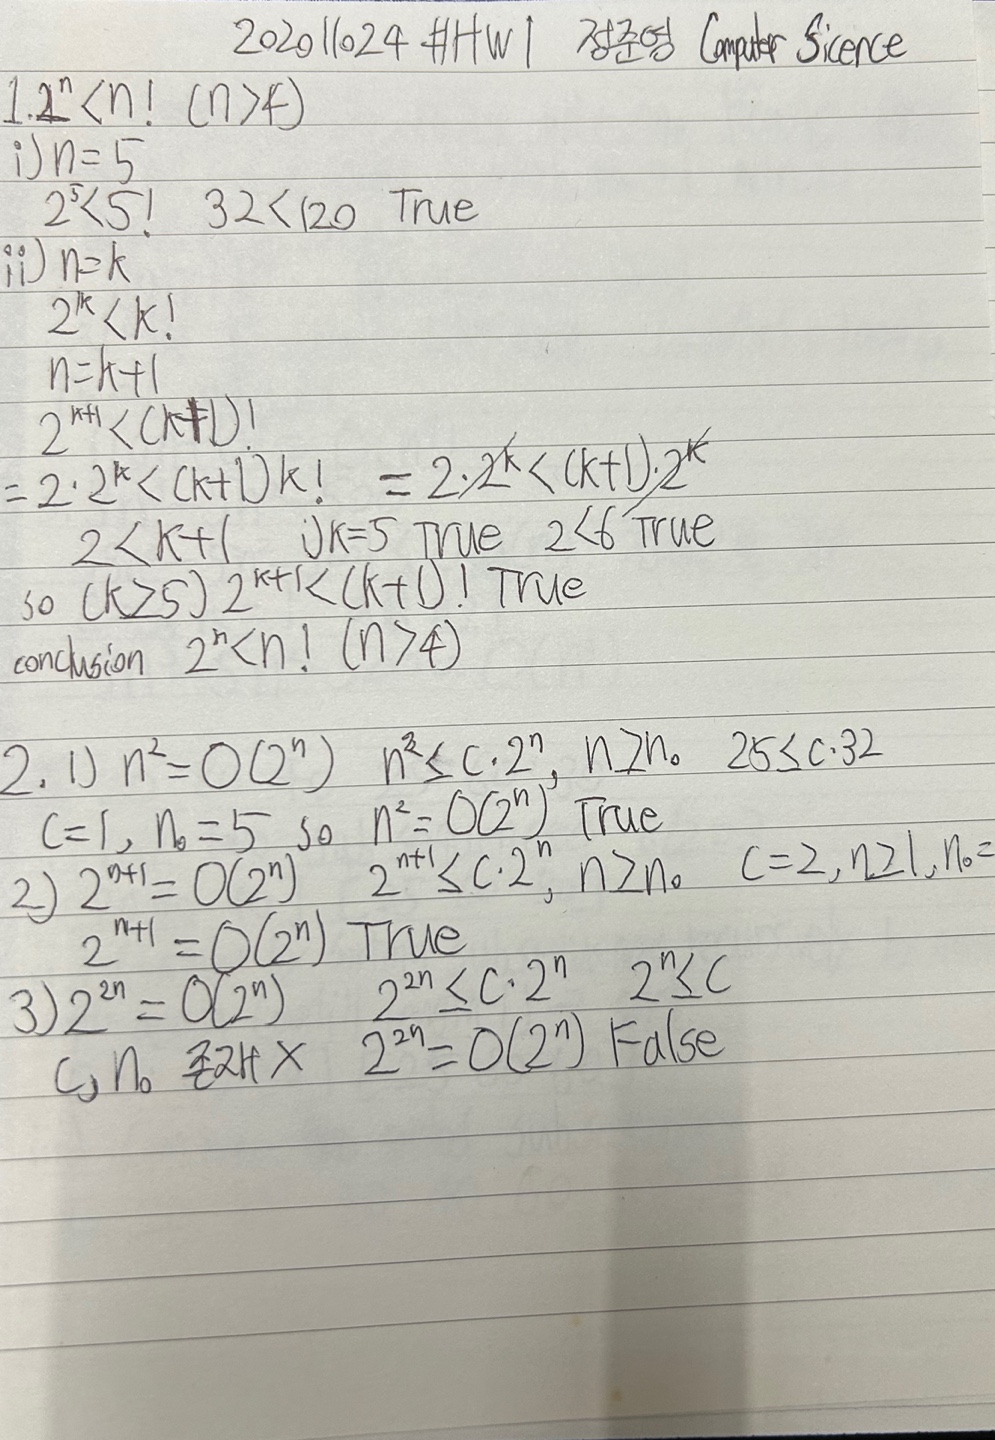 202011024 #HW1 정준영 Computer Sicence
1. 2ⁿ<n! (n>4)
i) n=5
2⁵<5! 32<120 True
ii) n=k
2ᵏ<k!
n=k+1
2ᵏ⁺¹<(k+1)!
=2·2ᵏ<(k+1)k! =2·2ᵏ<(k+1)·2ᵏ
2<k+1 i)k=5 True 2<6 True
so (k≥5) 2ᵏ⁺¹<(k+1)! True
conclusion 2ⁿ<n! (n>4)
2. 1) n²=O(2ⁿ) n²≤c·2ⁿ, n≥n₀ 25≤c·32
c=1, n₀=5 so n²=O(2ⁿ) True
2) 2ⁿ⁺¹=O(2ⁿ) 2ⁿ⁺¹≤c·2ⁿ, n≥n₀ c=2, n≥1, n₀=
2ⁿ⁺¹=O(2ⁿ) True
3) 2²ⁿ=O(2ⁿ) 2²ⁿ≤c·2ⁿ 2ⁿ≤c
c, n₀ 존재 X 2²ⁿ=O(2ⁿ) False